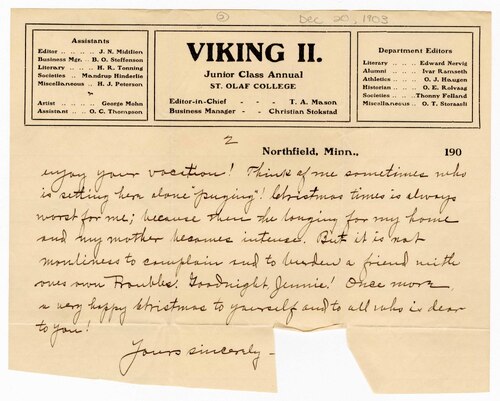 ② Dec 20, 1903
Assistants
Editor .. .. .. .. J. N. Midtlien
Business Mgr. .. B. O. Steffenson
Literary .. .. .. H. R. Tonning
Societies .. .. Mandrup Hinderlie
Miscellaneous .. .. H. J. Peterson
Artist .. .. .. .. George Mohn
Assistant .. .. O. C. Thompson
VIKING II.
Junior Class Annual
ST. OLAF COLLEGE
Editor-in-Chief - - T. A. Mason
Business Manager - - Christian Stokstad
Department Editors
Literary .. .. .. Edward Nervig
Alumni .. .. .. Ivar Ramseth
Athletics .. .. .. O. J. Haugen
Historian .. .. .. O. E. Rolvaag
Societies .. .. Thonny Felland
Miscellaneous .. O. T. Storaasli
2
Northfield, Minn., 190
enjoy your vacation! Think of me sometimes who
is setting here alone "puging"! Christmas times is always
worst for me; because then the longing for my home
and my mother becomes intense. But it is not
manliness to complain and to burden a friend with
ones own Troubles. Goodnight, Jennie! Once more
a very happy Christmas to yourself and to all who is dear
to you!
Yours sincerely -